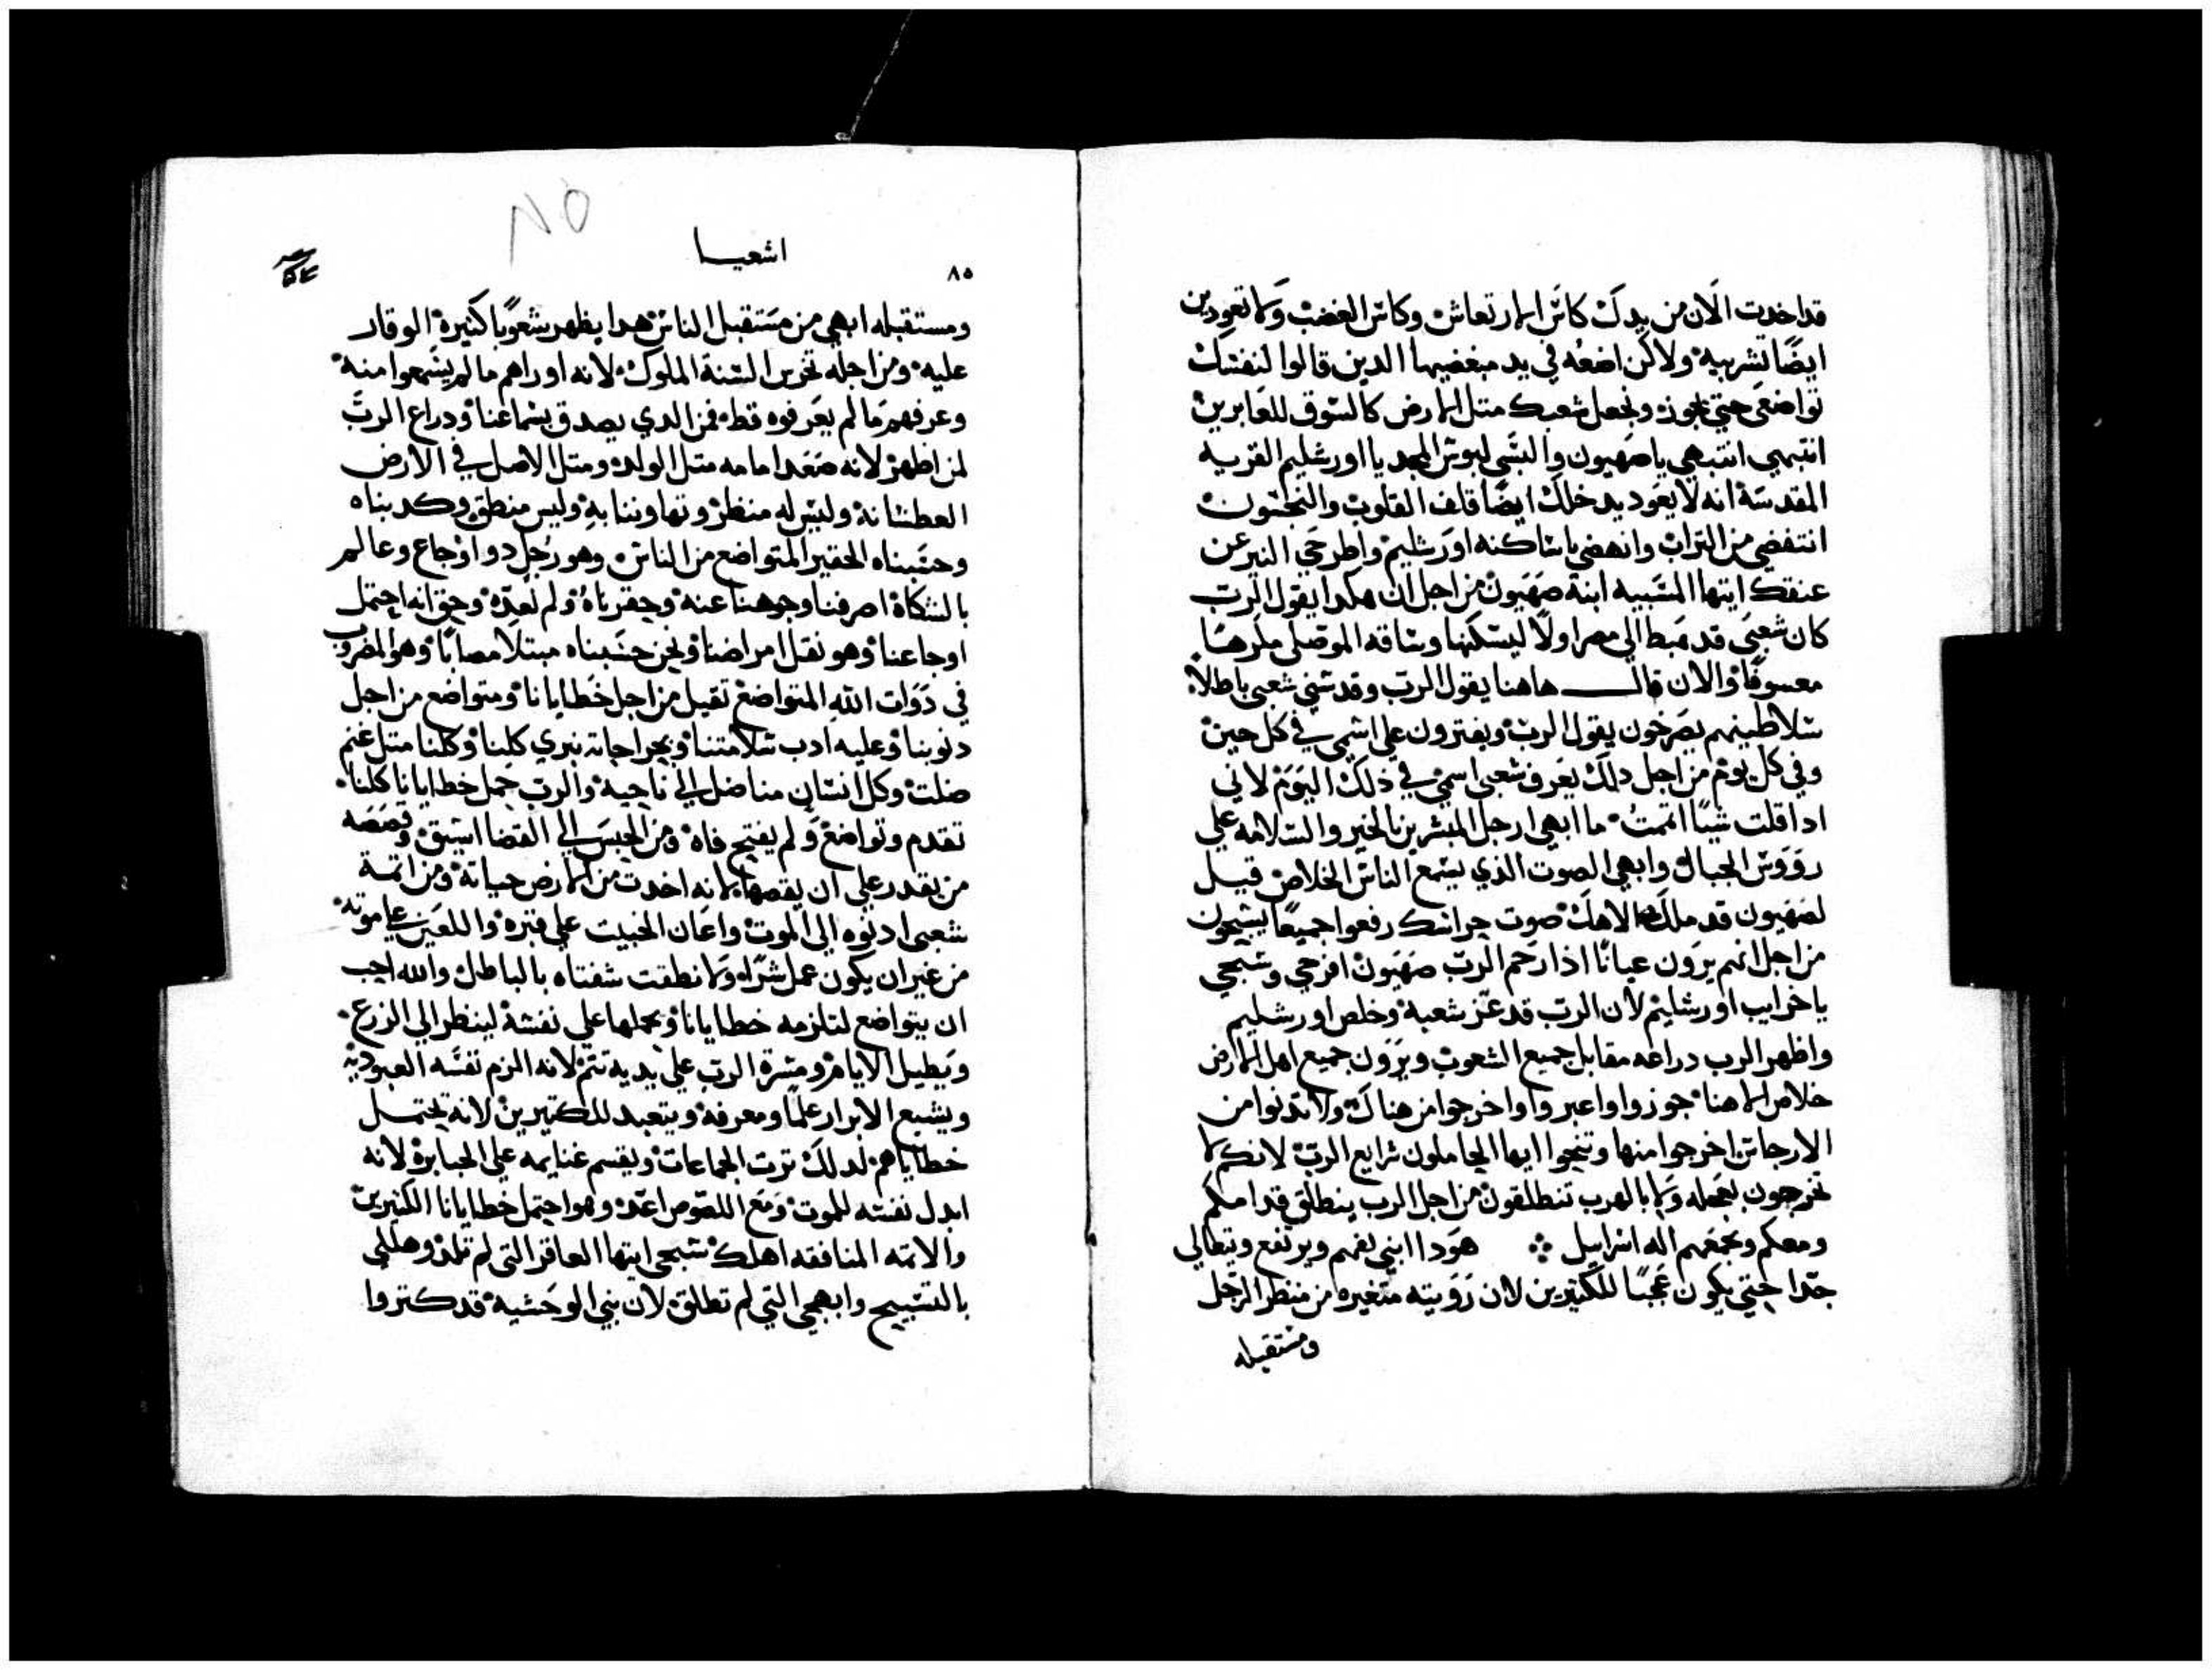 قد اخدت الان من يدك كاس الارتعاش وكاس الغضب ولا تعودين
ايضا تشربيه ولاكن اضعه في يد مبغضيها الدين قالوا لنفسك
تواضعي حتي نجوز ونجعل شعبك متل الارض كالسوق للعابرين
انتبهي انتبهي ياصهيون والبسي لبوس المجد يا اورشليم القريه
المقدسة انه لا يعود يدخلك ايضا قلف القلوب والنجسون
انتفضي من التراب وانهضي ياساكنه اورشليم واطرحي النير عن
عنقك ايتها المسبيه ابنة صهيون من اجل ان هكدا يقول الرب
كان شعبي قد هبط الي مصر اولا ليسكنها وساقه الموصلي
والان قال هاهنا يقول الرب وقد سبي شعبي باطلا
سلاطينهم يصرخون يقول الرب ويفترون علي اسمي في كل حين
وفي كل يوم من اجل دلك يعرف شعبي اسمي في ذلك اليوم لاني
ادا قلت شيا اتممت ما ابهي ارجل المبشرين بالخير والسلامه علي
رؤوس الجبال وابهي الصوت الذي يسمع الناس الخلاص قيل
لصهيون قد ملك الاهك صوت حراسك رفعوا جميعا يسبحون
من اجل انهم يرون عيانا اذا رحم الرب صهيون افرحي وسبحي
ياخرايب اورشليم لان الرب قد عز شعبه وخلص اورشليم
واظهر الرب دراعه مقابل جميع الشعوب ويرون جميع اهل الارض
خلاص الاهنا جوزوا واعبروا واخرجوا من هناك ولا تدنوا من
الارجاس اخرجوا منها وتنحوا ايها الحاملون شرايع الرب لانكم لا
تخرجون بعجله ولا بالهرب تنطلقون من اجل الرب ينطلق قدامكم
ومعكم وجمعهم اله اسراييل هودا ابني يفهم ويرتفع ويتعالي
جدا حتي يكون عجبا للكتيرين لان رؤيته متغيره من منظر الرجل
ومستقبله
اشعيا
٨٥
ومستقبله ابهي من مستقبل الناس هدا يظهر شعوبا كتيرة الوقار
عليه ومن اجله تخرس السنة الملوك لانه اوراهم مالم يسمعوا منه
وعرفهم ما لم يعرفوه قط فمن الدي يصدق بسماعنا ودراع الرب
لمن اظهر لانه صعد امامه متل الولد ومتل الاصل في الارض
العطشانه وليس له منظر وتهاوننا به وليس منطق وكدبناه
وحسبناه الحقير المتواضع من الناس وهو رجل دو اوجاع وعالم
بالشكاة اصرفنا وجوهنا عنه وحقرناه ولم نعده وحق انه احتمل
اوجاعنا وهو نقل امراضنا ونحن حسبناه مبتلا مصابا وهو المضروب
في دوات الله المتواضع تقيل من اجل خطايانا ومتواضع من اجل
دنوبنا وعليه ادب سلامتنا وبجراحاته نبري كلنا وكلنا متل غنم
ضلت وكل انسان منا ضل الي ناحيه والرب حمل خطايانا كلنا
تقدم وتواضع ولم يفتح فاه ومن الحبس الي القضا اسيق وقصصه
من يقدر علي ان يقصها لانه اخدت من الارض حياته ومن اتمة
شعبي ادنوه الي الموت واعان الخبيت علي قبره واللعين علي موته
من غير ان يكون عمل شرا ولا نطقت شفتاه بالباطل والله احب
ان يتواضع لتلزمه خطايانا ويحملها علي نفسه لينظر الي الزرع
ويطيل الايام ومسرة الرب علي يديه تتم لانه الزم نفسه العبوديه
ويشبع الابرار علما ومعرفة ويتعبد للكتيرين لانه يحتمل
خطاياهم لدلك ترت الجماعات ويقسم غنايمه علي الجبابرة لانه
ابدل نفسه للموت ومع اللصوص اعد وهو احتمل خطايانا الكتيرين
والامه المنافقه اهلك سبحي ايتها العاقر التي لم تلد وهللي
بالتسبيح وابهجي التي لم تطلق لان بني الوحشيه قد كتروا